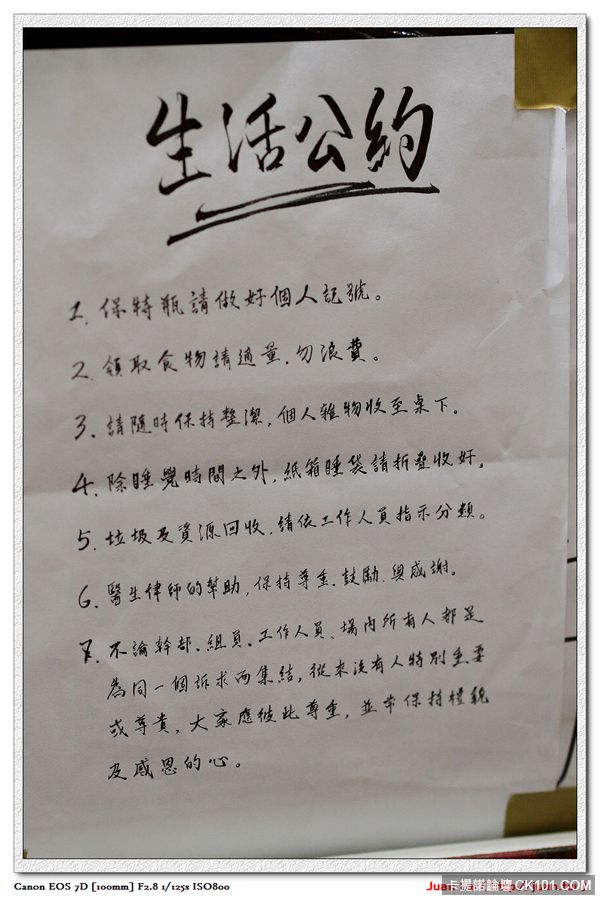 生活公約
1. 保特瓶請做好個人記號。
2. 領取食物請適量、勿浪費。
3. 請隨時保持整潔，個人雜物收至桌下。
4. 除睡覺時間之外，紙箱睡袋請折疊收好。
5. 垃圾及資源回收，請依工作人員指示分類。
6. 醫生律師的幫助，保持尊重、鼓勵、與感謝。
7. 不論幹部、組員、工作人員、場內所有人都是
為同一個訴求而集結，從來沒有人特別重要
或尊貴，大家應彼此尊重，並常保持禮貌
及感恩的心。
Canon EOS 7D [100mm] F2.8 1/125s ISO800
Juan
卡提諾論壇CK101.COM